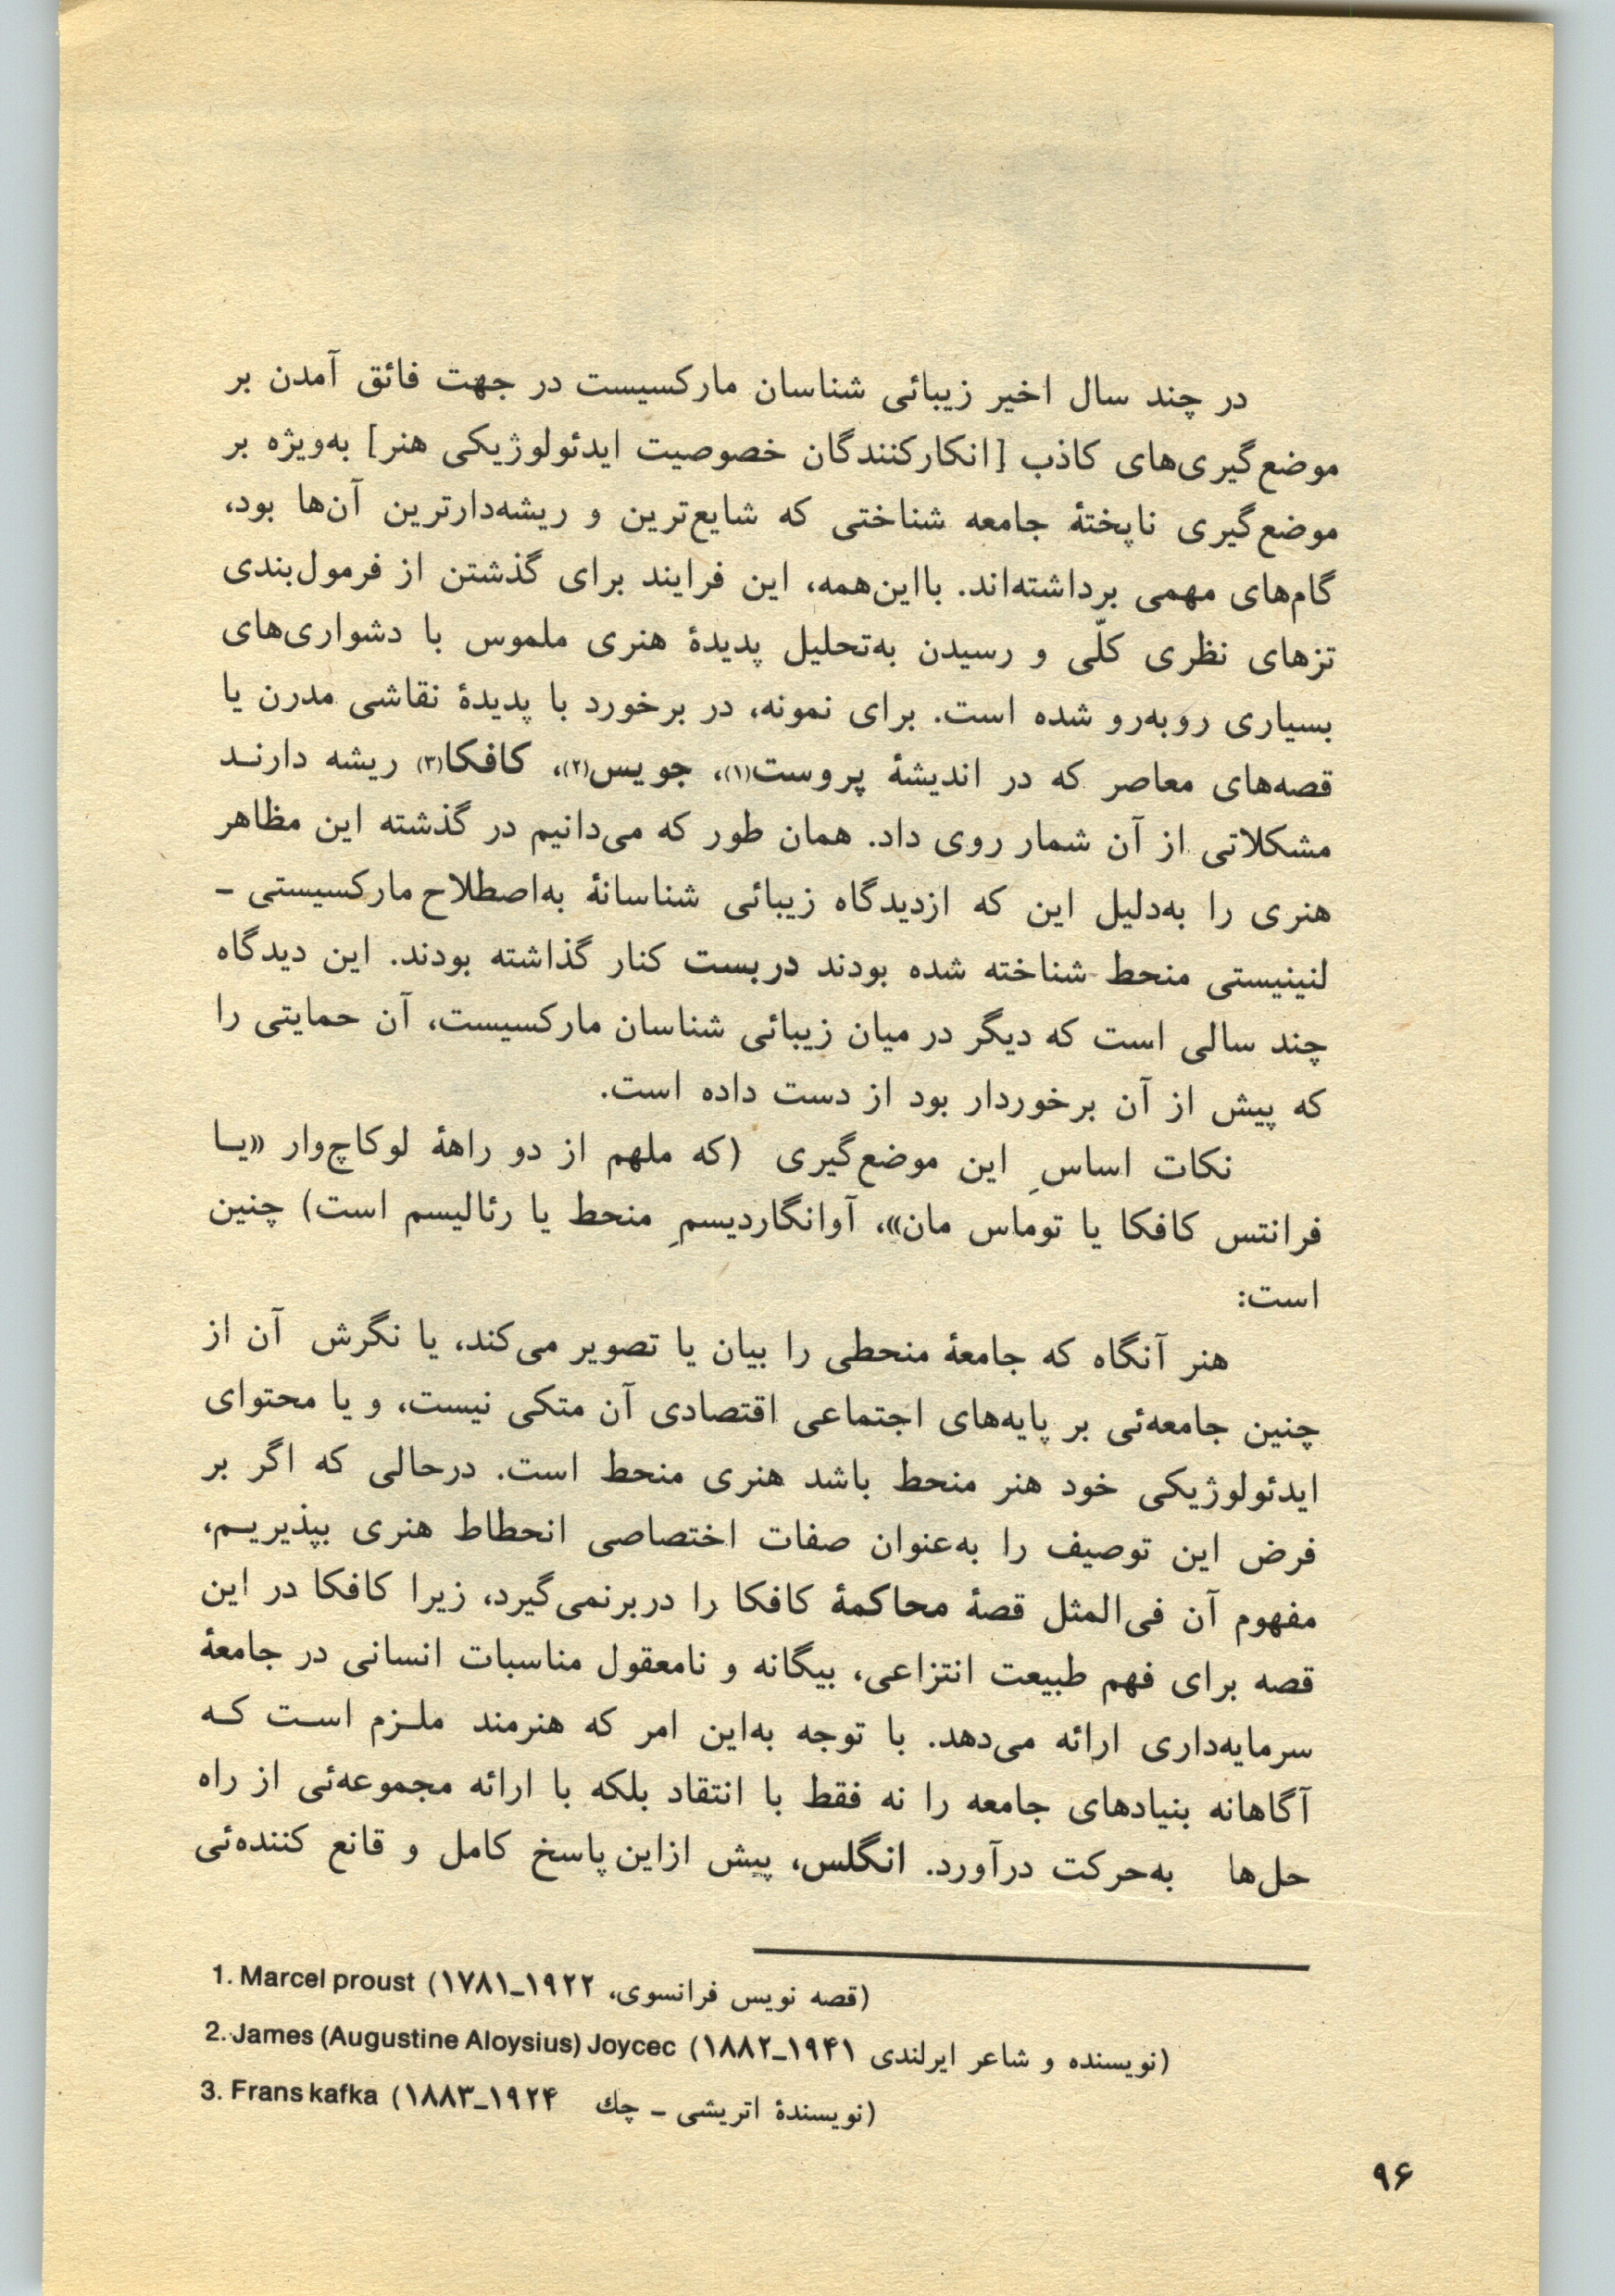 در چند سال اخیر زیبائی شناسان مارکسیست در جهت فائق آمدن بر
موضع‌گیری‌های کاذب [انکارکنندگان خصوصیت ایدئولوژیکی هنر] به‌ویژه بر
موضع‌گیری ناپختهٔ جامعه شناختی که شایع‌ترین و ریشه‌دارترین آن‌ها بود،
گام‌های مهمی برداشته‌اند. بااین‌همه، این فرایند برای گذشتن از فرمول‌بندی
تزهای نظری کلّی و رسیدن به‌تحلیل پدیدهٔ هنری ملموس با دشواری‌های
بسیاری روبه‌رو شده است. برای نمونه، در برخورد با پدیدهٔ نقاشی مدرن یا
قصه‌های معاصر که در اندیشهٔ پروست(۱)، جویس(۲)، کافکا(۳) ریشه دارنـد
مشکلاتی از آن شمار روی داد. همان طور که می‌دانیم در گذشته این مظاهر
هنری را به‌دلیل این که ازدیدگاه زیبائی شناسانهٔ به‌اصطلاح مارکسیستی –
لنینیستی منحط شناخته شده بودند دربست کنار گذاشته بودند. این دیدگاه
چند سالی است که دیگر در میان زیبائی شناسان مارکسیست، آن حمایتی را
که پیش از آن برخوردار بود از دست داده است.
نکات اساسِ این موضع‌گیری (که ملهم از دو راههٔ لوکاچ‌وار «یـا
فرانتس کافکا یا توماس مان»، آوانگاردیسمِ منحط یا رئالیسم است) چنین
است:
هنر آنگاه که جامعهٔ منحطی را بیان یا تصویر می‌کند، یا نگرش آن از
چنین جامعه‌ئی بر پایه‌های اجتماعی اقتصادی آن متکی نیست، و یا محتوای
ایدئولوژیکی خود هنر منحط باشد هنری منحط است. درحالی که اگر بر
فرض این توصیف را به‌عنوان صفات اختصاصی انحطاط هنری بپذیریـم،
مفهوم آن فی‌المثل قصهٔ محاکمهٔ کافکا را دربرنمی‌گیرد، زیرا کافکا در این
قصه برای فهم طبیعت انتزاعی، بیگانه و نامعقول مناسبات انسانی در جامعهٔ
سرمایه‌داری ارائه می‌دهد. با توجه به‌این امر که هنرمند ملـزم اسـت کـه
آگاهانه بنیادهای جامعه را نه فقط با انتقاد بلکه با ارائه مجموعه‌ئی از راه
حل‌ها به‌حرکت درآورد. انگلس، پیش ازاین پاسخ کامل و قانع کننده‌ئی
1. Marcel proust (قصه نویس فرانسوی، ۱۹۲۲–۱۷۸۱)
2. James (Augustine Aloysius) Joycec (نویسنده و شاعر ایرلندی ۱۹۴۱–۱۸۸۲)
3. Frans kafka (نویسندهٔ اتریشی – چك ۱۹۲۴–۱۸۸۳)
۹۶